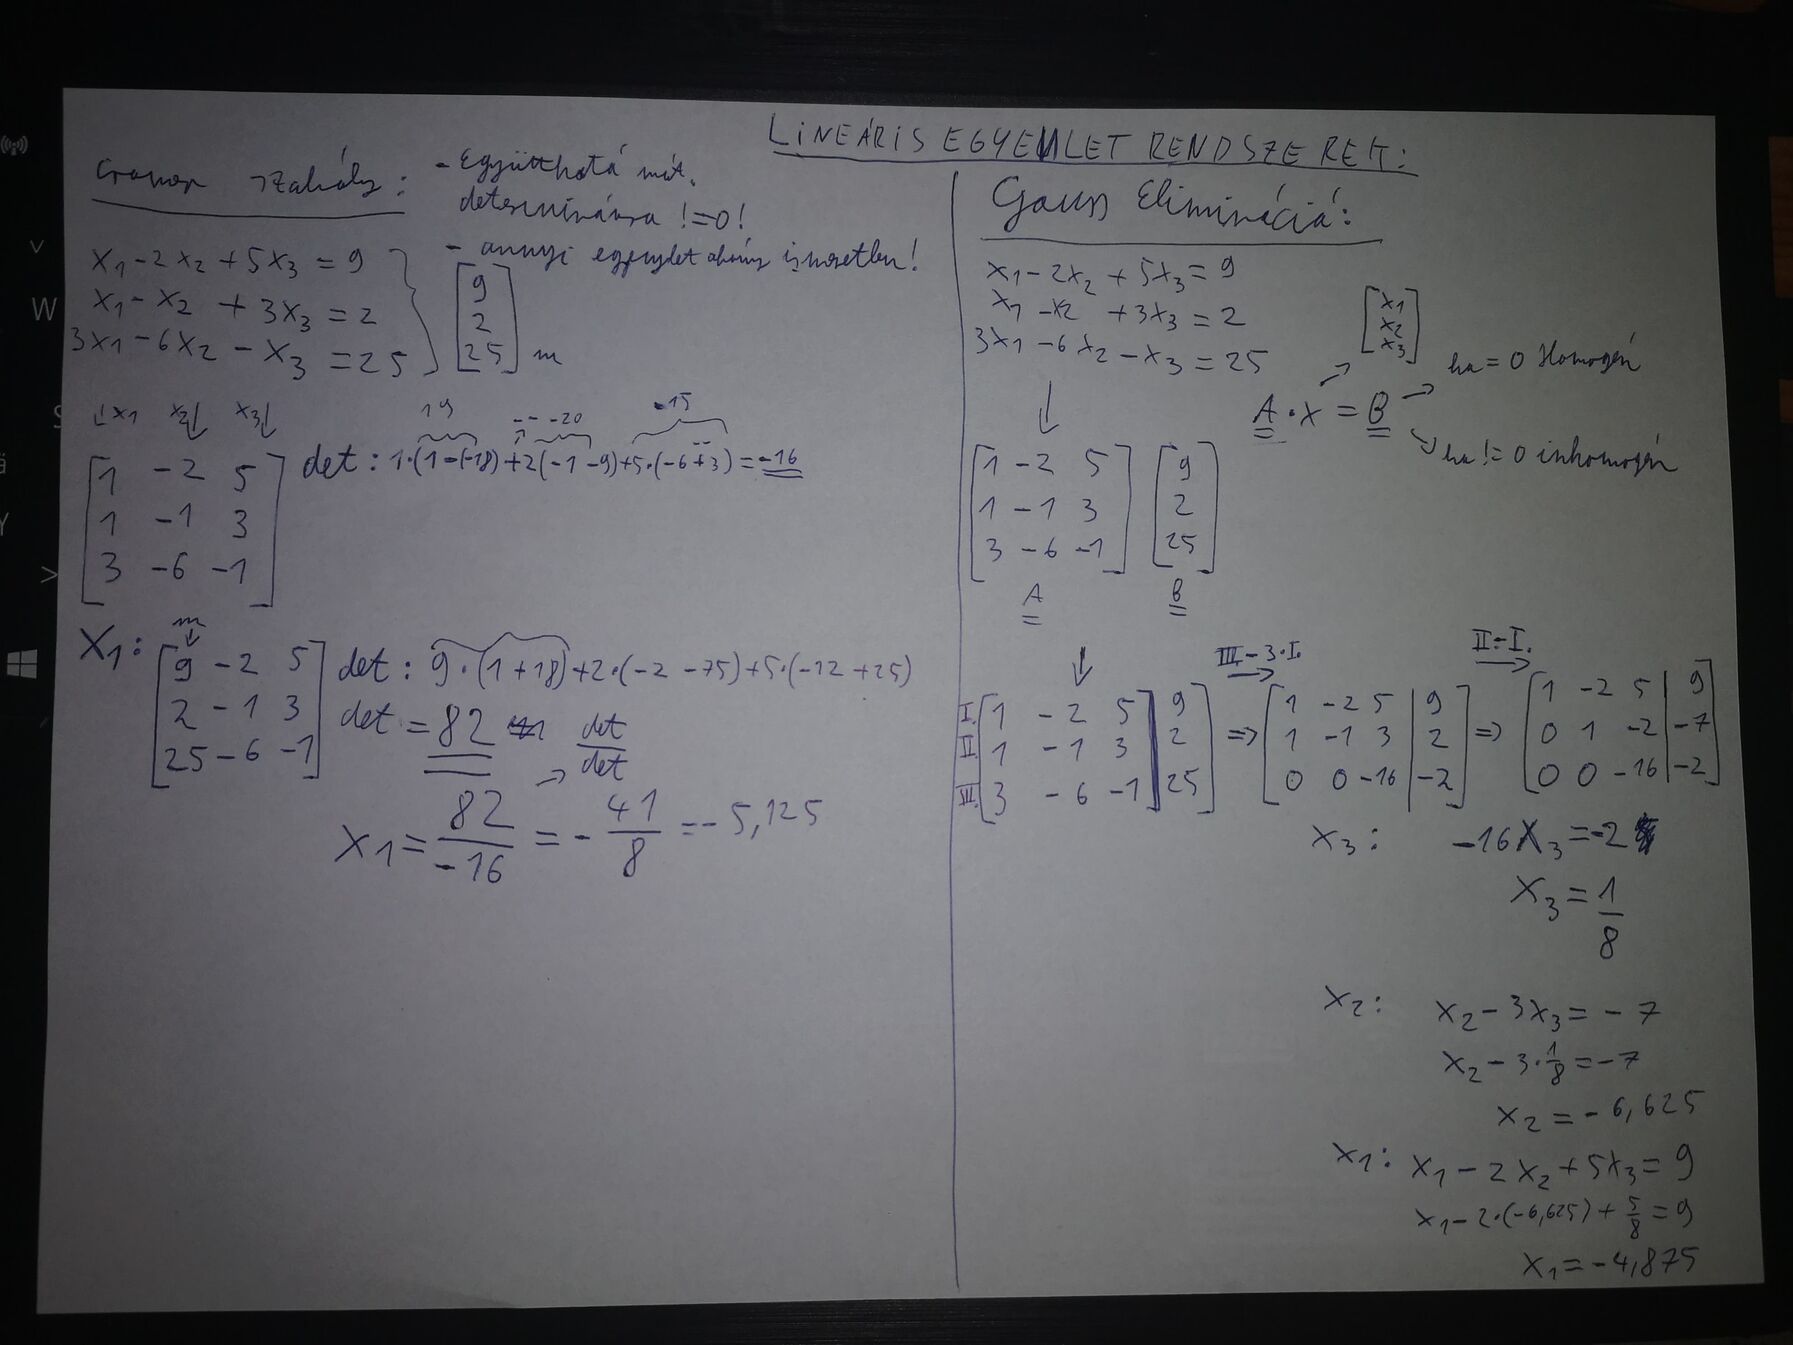 LINEÁRIS EGYENLET RENDSZEREK:
Cramer szabály:
- Együttható mát.
determinánsa !=0!
- annyi egyenlet ahány ismeretlen!
x1 - 2x2 + 5x3 = 9
x1 - x2 + 3x3 = 2
3x1 - 6x2 - x3 = 25
[9
2
25] m
↓x1 x2↓ x3↓
[1 -2 5
1 -1 3
3 -6 -1]
19 -- -20 -15
det: 1·(1-(-18)+2(-1-9)+5·(-6+3)=-16
m
↓
X1: [9 -2 5
2 -1 3
25 -6 -1]
det: 9·(1+18)+2·(-2-75)+5·(-12+25)
det = 82
→ det/det
x1 = 82/-16 = - 41/8 = -5,125
Gauss Elimináció:
x1 - 2x2 + 5x3 = 9
x1 - x2 + 3x3 = 2
3x1 - 6x2 - x3 = 25
[x1
x2
x3]
A·x = B
ha = 0 Homogén
ha != 0 inhomogén
[1 -2 5] [9
1 -1 3 2
3 -6 -1] 25]
A B
III - 3·I. II - I.
I. [1 -2 5 | 9] => [1 -2 5 | 9] => [1 -2 5 | 9]
II. [1 -1 3 | 2] [1 -1 3 | 2] [0 1 -2 | -7]
III. [3 -6 -1 | 25] [0 0 -16 | -2] [0 0 -16 | -2]
x3: -16x3 = -2
x3 = 1/8
x2: x2 - 3x3 = -7
x2 - 3·1/8 = -7
x2 = -6,625
x1: x1 - 2x2 + 5x3 = 9
x1 - 2·(-6,625) + 5/8 = 9
x1 = -4,875
W
Y